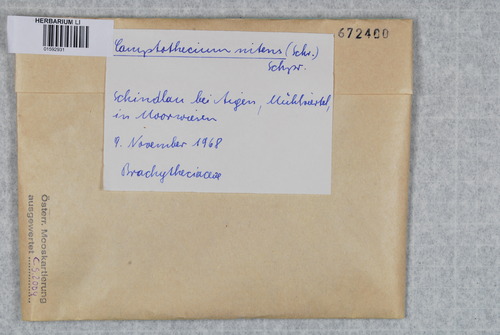 HERBARIUM LJ
01692931
672400
Camptothecium nitens (Schr.)
Schpr.
Schindlau bei Aigen, Mühlviertel,
in Moorwiesen
9. November 1968
Brachytheciaceae
Österr. Mooskartierung
ausgewertet